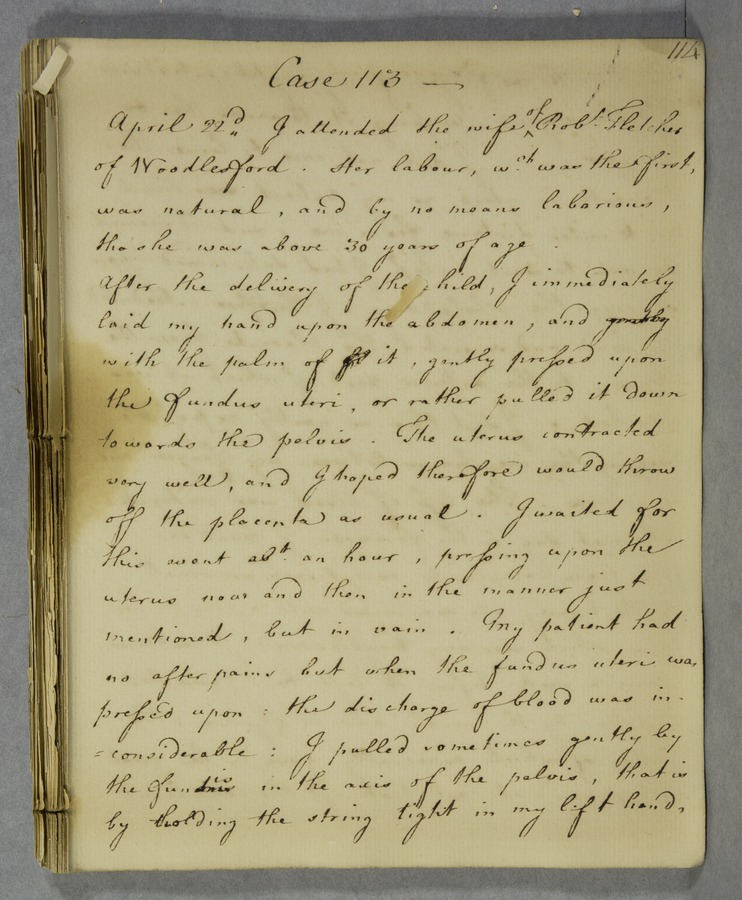 114
Case 113 —
April 22d I attended the wife of Robt. Fletcher
of Woodlesford. Her labour, wch was the first,
was natural, and by no means laborious,
tho she was above 30 years of age.
After the delivery of the child, I immediately
laid my hand upon the abdomen, and gently
with the palm of it, gently pressed upon
the fundus uteri, or rather pulled it down
towards the pelvis. The uterus contracted
very well, and I hoped therefore would throw
off the placenta as usual. I waited for
this event abt. an hour, pressing upon the
uterus now and then in the manner just
mentioned, but in vain. My patient had
no after pains but when the fundus uteri was
pressed upon: the discharge of blood was in-
=considerable: I pulled sometimes gently by
the funis in the axis of the pelvis, that is
by holding the string tight in my left hand,